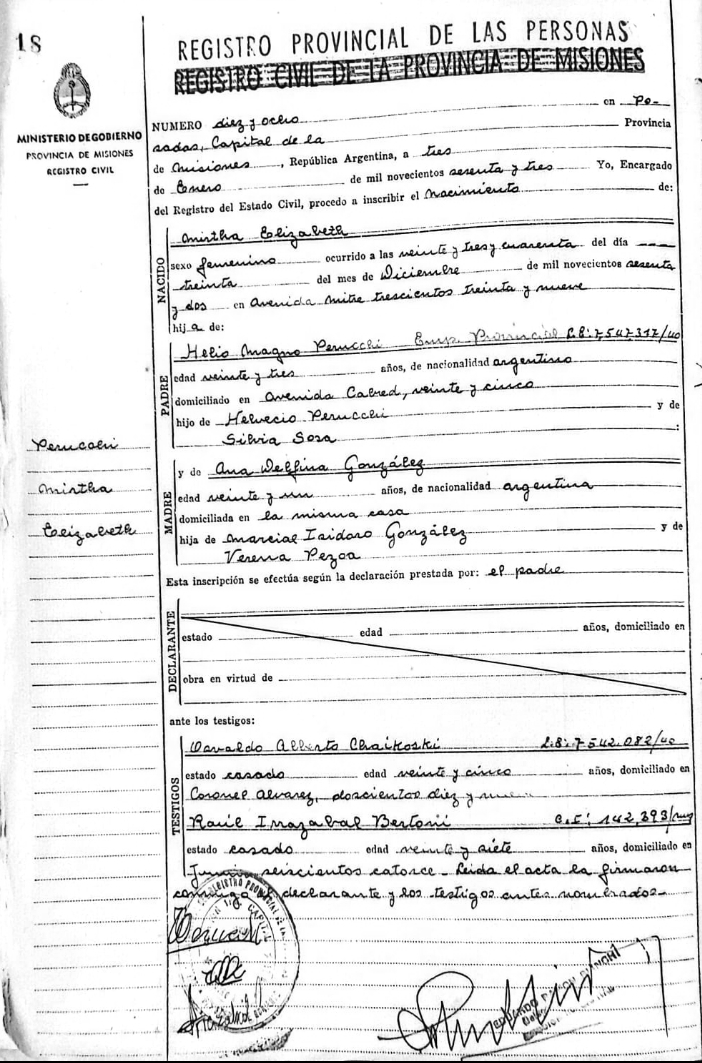 18
REGISTRO PROVINCIAL DE LAS PERSONAS
REGISTRO CIVIL DE LA PROVINCIA DE MISIONES
MINISTERIO DE GOBIERNO
PROVINCIA DE MISIONES
REGISTRO CIVIL
NUMERO diez y ocho en Po-
sadas, Capital de la Provincia
de Misiones, República Argentina, a tres
de Enero de mil novecientos sesenta y tres Yo, Encargado
del Registro del Estado Civil, procedo a inscribir el Nacimiento de:
NACIDO
Mirtha Elizabeth
sexo femenino ocurrido a las veinte y tres y cuarenta del día
treinta del mes de Diciembre de mil novecientos sesenta
y dos en Avenida Mitre trescientos treinta y nueve
hija de:
PADRE
Helio Magno Perucchi Emp. Provincial L.E: 7.547.317/40
edad veinte y tres años, de nacionalidad argentino
domiciliado en Avenida Cabred, veinte y cinco
hijo de Helvecio Perucchi y de
Silvia Sosa :
Perucchi
Mirtha
Elizabeth
MADRE
y de Ana Delfina González
edad veinte y un años, de nacionalidad argentina
domiciliada en la misma casa
hija de Marcial Isidoro González y de
Verena Pezoa
Esta inscripción se efectúa según la declaración prestada por: el padre
DECLARANTE
estado edad años, domiciliado en
obra en virtud de
ante los testigos:
TESTIGOS
Osvaldo Alberto Chaikoski L.E: 7.542.082/40
estado casado edad veinte y cinco años, domiciliado en
Coronel Alvarez, doscientos diez y
Raúl Irrazabal Bertoni C.I: 142.393/
estado casado edad veinte y siete años, domiciliado en
Junin seiscientos catorce - Leida el acta la firmaron
declarante y los testigos antes nombrados-
REGISTRO PROVINCIAL DE LAS
CAPITAL